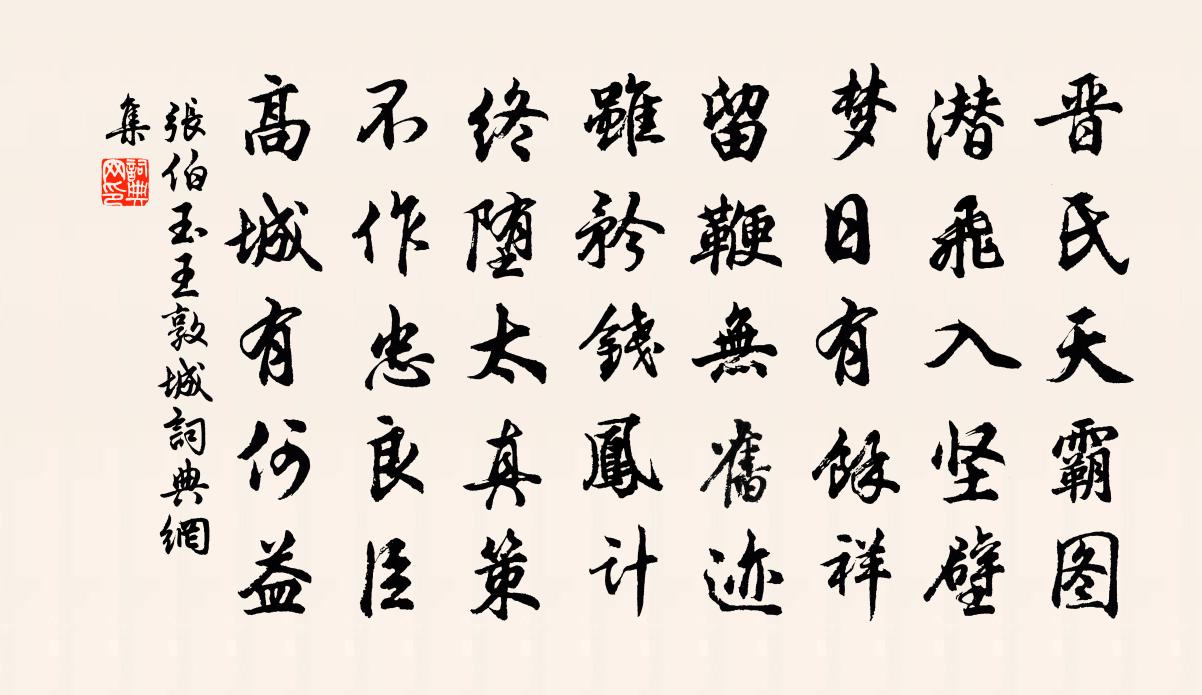 晋氏天霸图
潜飛入坚壁
梦日有餘祥
留鞭無舊迹
雖矜錢鳳计
终堕太真策
不作忠良臣
高城有何益
張伯玉王敦城詞典網
集
詞典網印